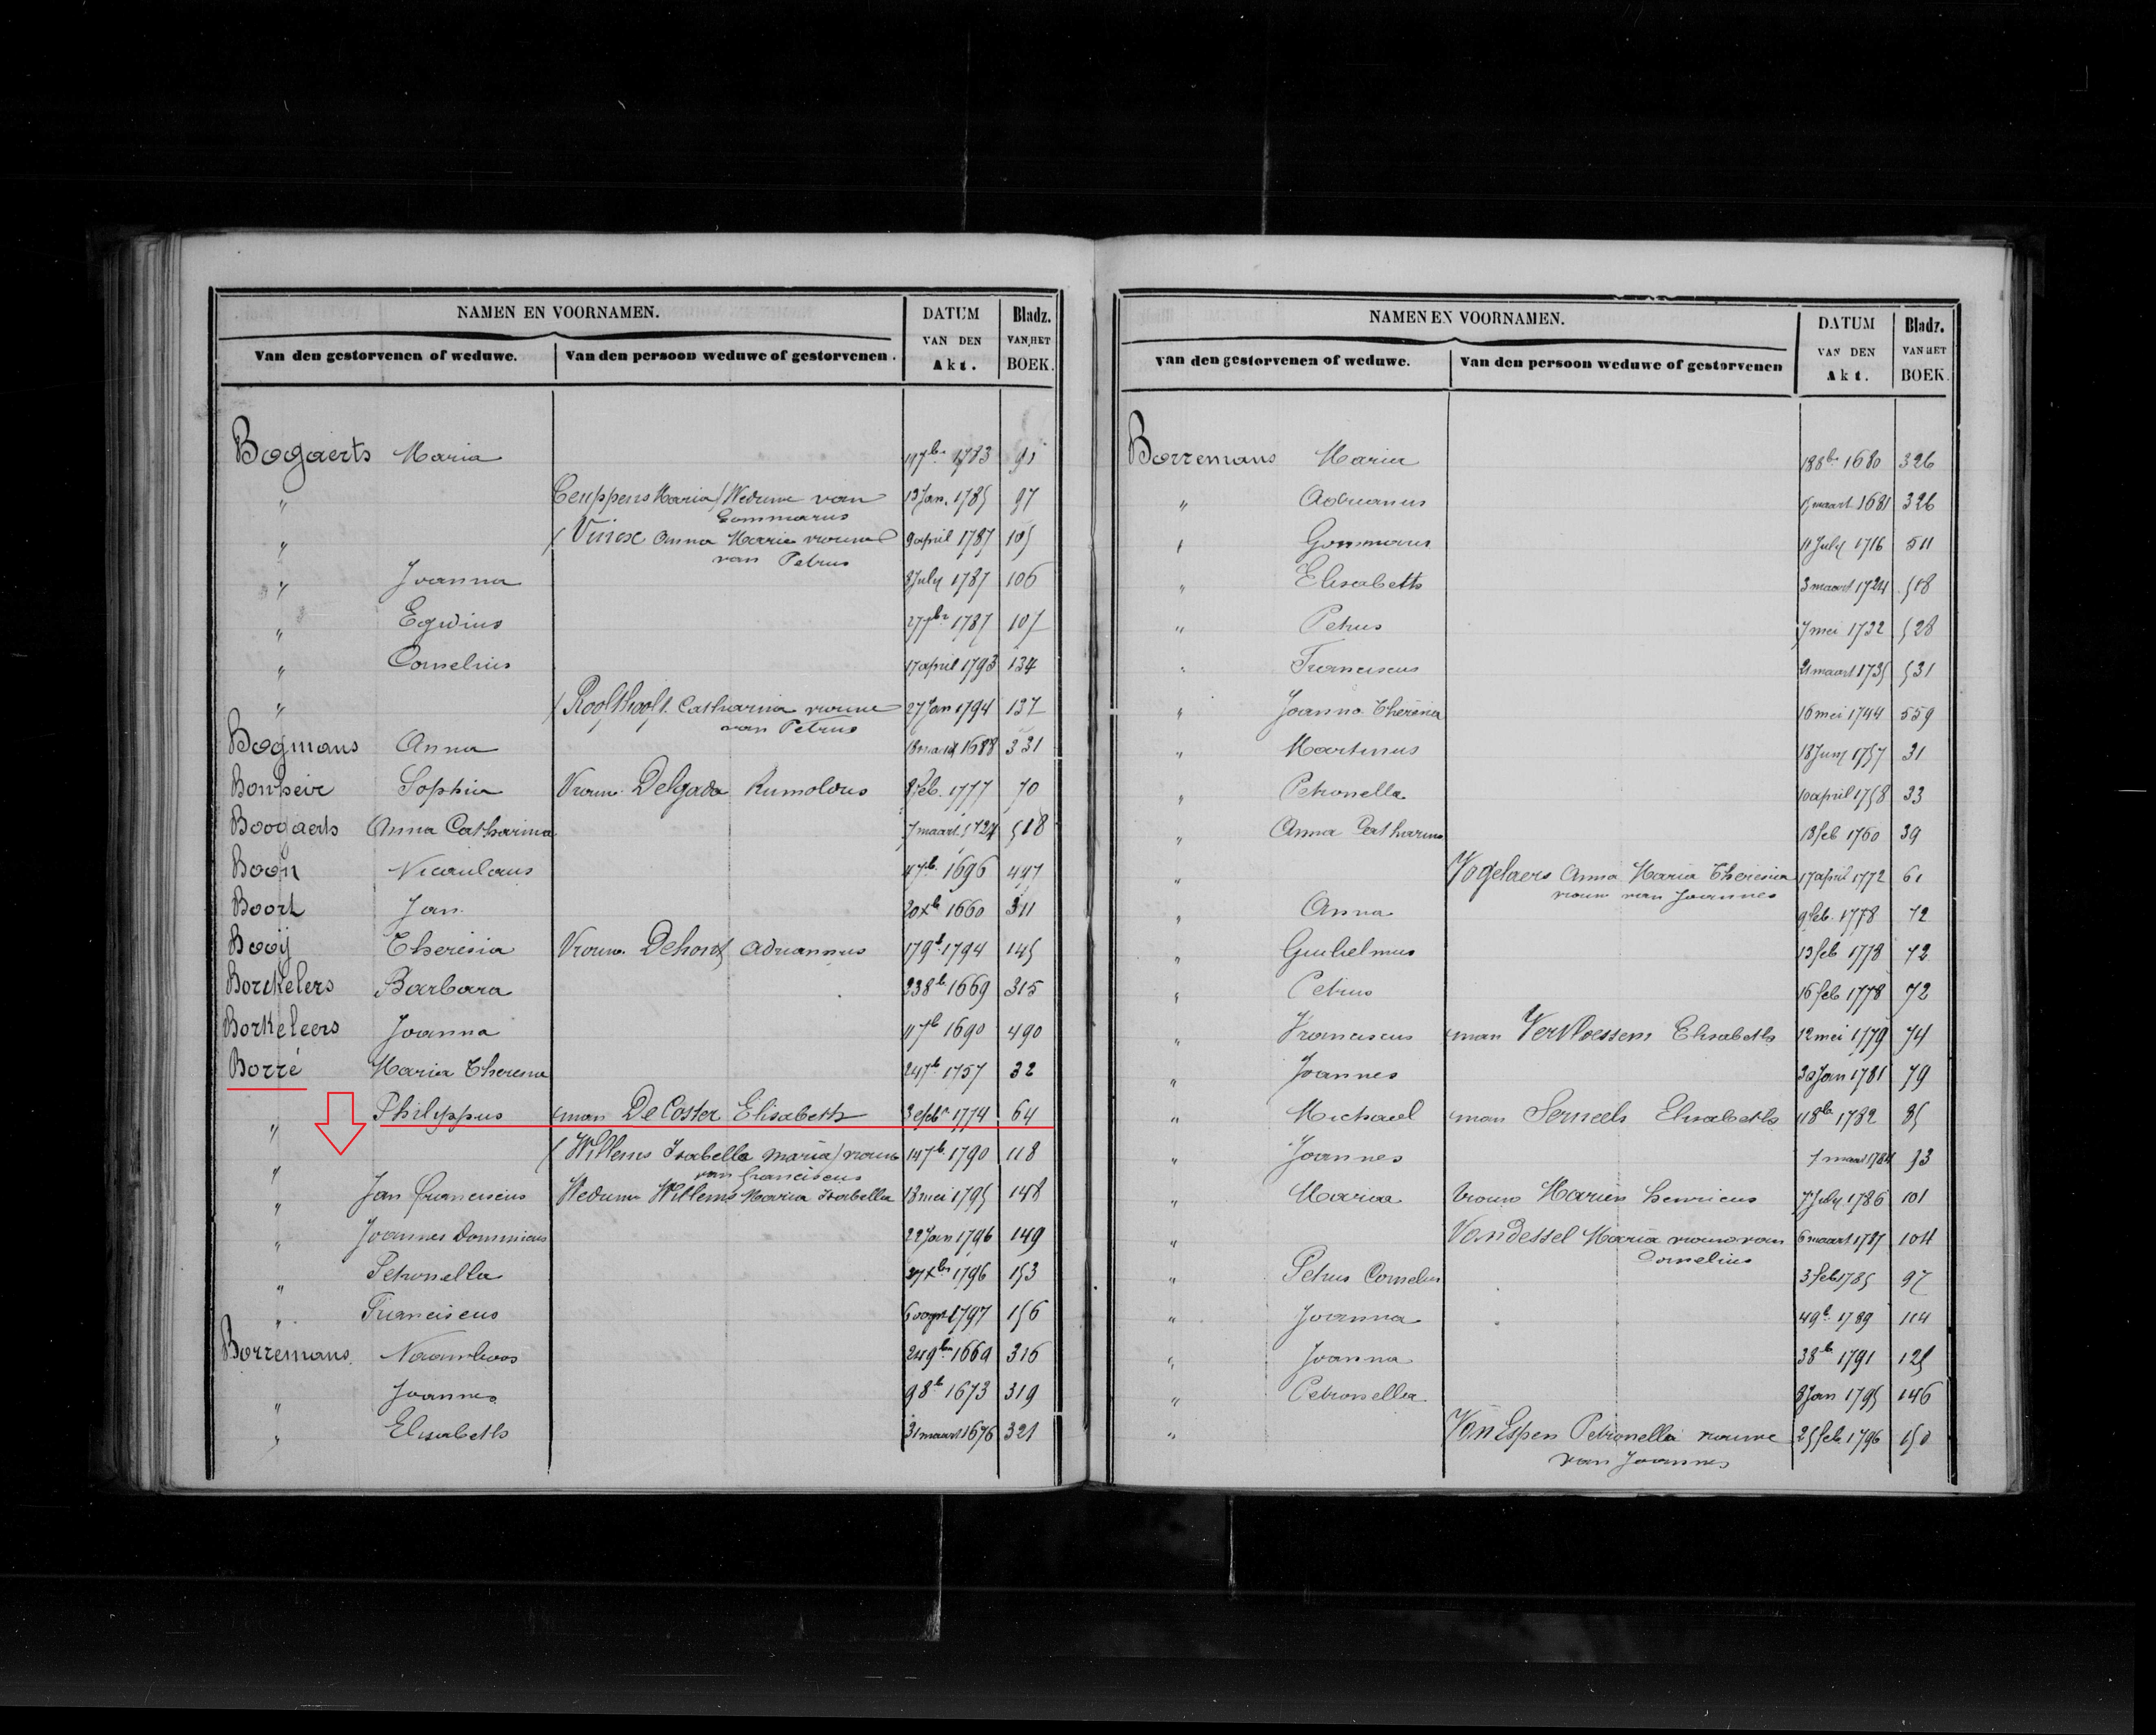 NAMEN EN VOORNAMEN. DATUM VAN DEN Akt. Bladz. VAN HET BOEK.
Van den gestorvenen of weduwe. Van den persoon weduwe of gestorvenen.
Bogaerts Maria 1783 91
" Ceuppens Maria / Weduwe van Gommarus 13 Jan. 1785 97
" / Vinex Anna Maria vrouw van Petrus 9 april 1787 105
" Joanna 8 July 1787 106
" Egidius 27 7br 1787 107
" Cornelius 17 april 1793 134
" / Roofthooft Catharina vrouw van Petrus 27 Jan 1794 137
Bogmans Anna 18 maart 1688 331
Sophia Vrouw Delgada Rumoldus 8 feb. 1777 70
Boogaerts Anna Catharina 7 maart 1724 518
Boon Nicaulaus 4 7b. 1696 447
Boort Jan 20 xb 1660 311
Booij Theresia Vrouw. Dehont Adriannus 17 9b 1794 145
Borckelers Barbara 23 8b 1669 315
Borkeleers Joanna 1 7b 1690 490
Borré Maria Theresia 24 7b 1757 32
" Philippus man De Coster Elisabeth 1774 64
" / Willems Isabella Maria / vrouw van franciscus 14 7b. 1790 118
" Jan franciscus Weduwe Willems Maria Isabella 18 mei 1795 148
" Joannes Dominicus 22 Jan 1796 149
" Petronella 27 xbr 1796 153
" Franciscus 6 1797 156
Borremans Naamloos 24 9br 1669 316
" Joannes 9 8b 1673 319
" Elisabeth 31 maart 1676 321
NAMEN EN VOORNAMEN. DATUM VAN DEN Akt. Bladz. VAN HET BOEK.
Van den gestorvenen of weduwe. Van den persoon weduwe of gestorvenen
Borremans Maria 18 8br 1680 326
" Adrianus maart 1681 326
" Gommarus 11 July 1716 511
" Elisabeth 3 maart 1724 518
" Petrus 7 mei 1732 528
" Franciscus 21 maart 1735 531
" Joanna Theresia 16 mei 1744 559
" Martinus 18 Juny 1757 31
" Petronella 10 april 1758 33
" Anna Catharina 18 feb 1760 39
" Vogelaers Anna Maria Theresia vrouw van Joannes 17 april 1772 61
" Anna 9 feb. 1778 72
" Guilielmus 13 feb 1778 72
" Petrus 16 feb 1778 72
" Franciscus man Vervloessem Elisabeth 12 mei 1779 74
" Joannes 30 Jan 1781 79
" Michael man Serneels Elisabeth 1 8br 1782 85
" Joannes 7 maart 1784 93
" Maria vrouw Marien henricus 7 July 1786 101
" Van dessel Maria vrouw van Cornelius 6 maart 1787 104
" Petrus Cornelius 3 feb 1785 97
" Joanna 4 9b. 1789 114
" Joanna 3 8b 1791 125
" Petronella 8 Jan 1795 146
" Van Espen Petronella vrouwe van Joannes 25 feb 1796 150